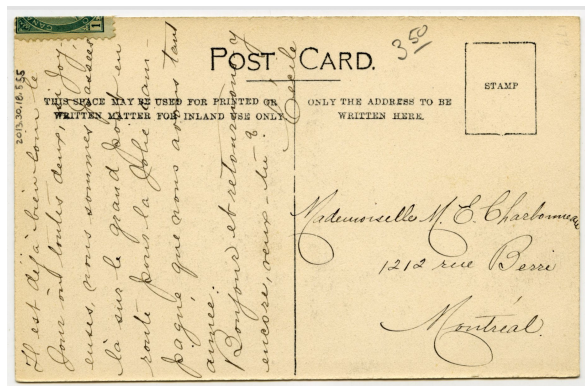 POST CARD.
3 50
THIS SPACE MAY BE USED FOR PRINTED OR
WRITTEN MATTER FOR INLAND USE ONLY
ONLY THE ADDRESS TO BE
WRITTEN HERE.
STAMP
2013.30.18.555
Il est déjà bien loin le
jour où toutes deux, si joy-
euses, nous sommes passées
là sur le grand pont en
route pour la jolie cam-
pagne que nous avons tant
aimée.
Bonjour et retournons-y
encore, veux-tu?
Cécile
Mademoiselle M. E. Charbonneau
1212 rue Berri
Montréal.